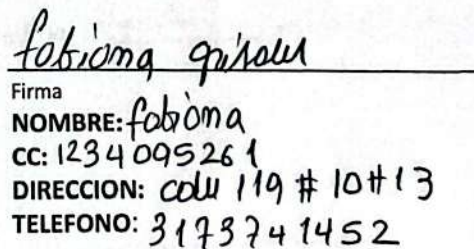 fabiana grisales
Firma
NOMBRE: fabiana
CC: 1234095261
DIRECCION: calle 119 # 10#13
TELEFONO: 3173741452